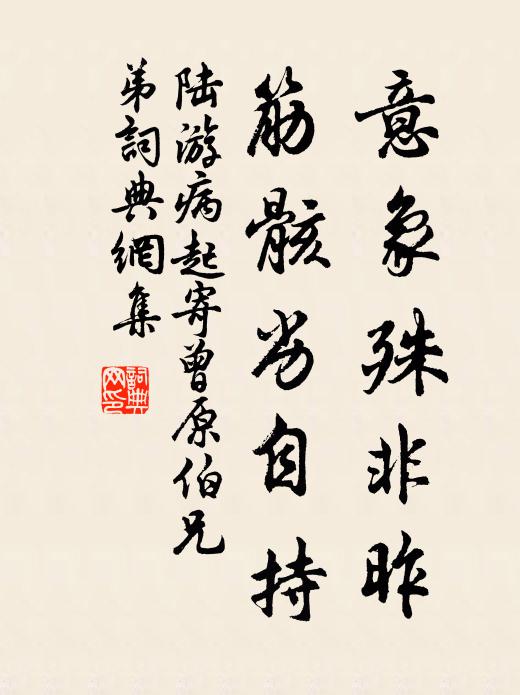 意象殊非昨
筋骸劣自持
陆游病起寄曾原伯兄
弟詞典網集
詞典
网印